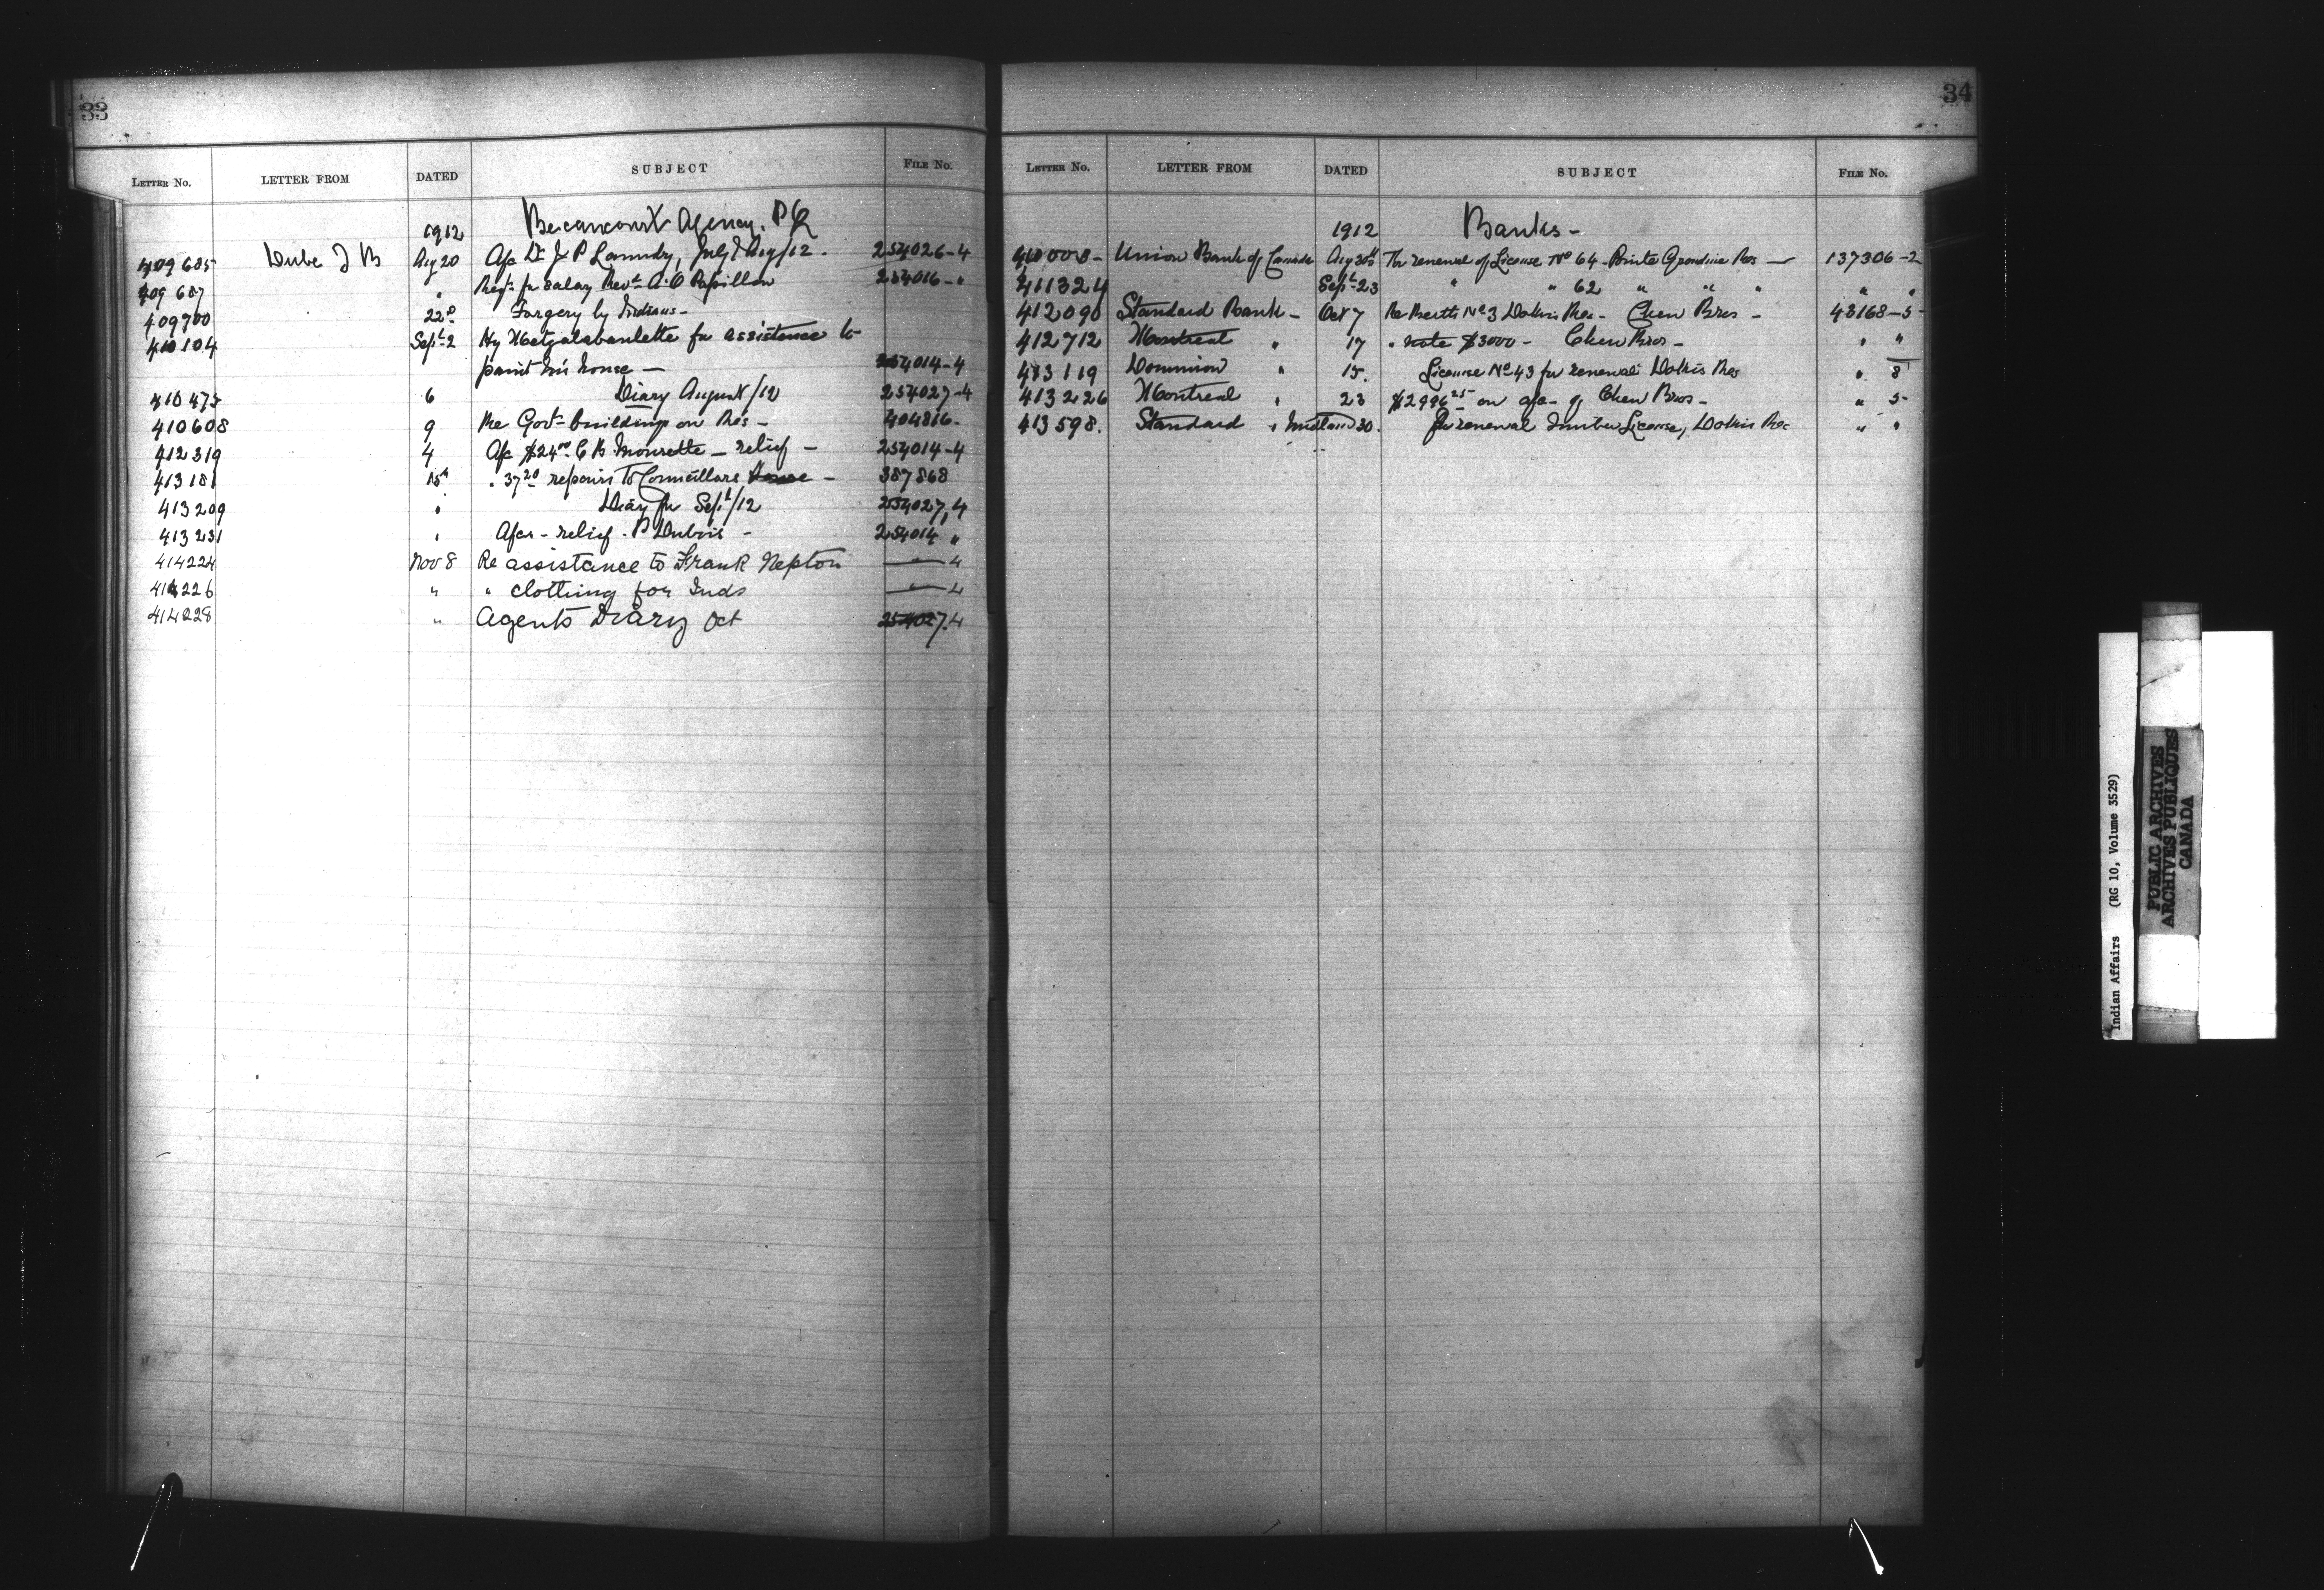 33
LETTER NO. LETTER FROM DATED SUBJECT FILE No.
1912 Becancourt Agency. P Q
409685 Dube J B Aug 20 A/c Dr J. P Landry, July & Aug/12. 254026-4
409687 " Reqt for salary Revd A. O Papillon 254016-"
409700 22d Forgery by Indians-
410104 Sept 2 Hy for assistance to
paint his house — 254014-4
410475 6 Diary August/12 254027-4
410608 9 Re Govt buildings on Res - 404816-
412319 4 A/c $24.00 — relief - 254014-4
413181 15th " 37 20 repairs to Councillors House - 387868
413209 " Diary for Sept/12 254027,4
413231 " A/cs - relief - P Dubois - 254014 "
414224 Nov 8 Re assistance to Frank Nepton — " — 4
414226 " " clothing for Inds — " — 4
414228 " Agents Diary Oct 254027.4
34
LETTER NO. LETTER FROM DATED SUBJECT FILE No.
1912 Banks -
410008- Union Bank of Canada Aug 30th For renewal of License No 64 - Pointe Grondine Res — 137306-2
411324 Sept 23 " " 62 " " " " "
412090 Standard Bank - Oct 7 Re Berth No 3 Dokis Res - Chew Bros - 43168-5-
412712 Montreal " 17 " note $3000 - Chew Bros - " "
413119 Dominion " 15. License No 43 for renewal Dokis Res " 8
413226 Montreal " 23 $2996 25 on a/c of Chew Bros - " 5-
413598. Standard " Midland 30. For renewal Timber License, Dokis Res " "
Indian Affairs (RG 10, Volume 3529)
PUBLIC ARCHIVES
ARCHIVES PUBLIQUES
CANADA